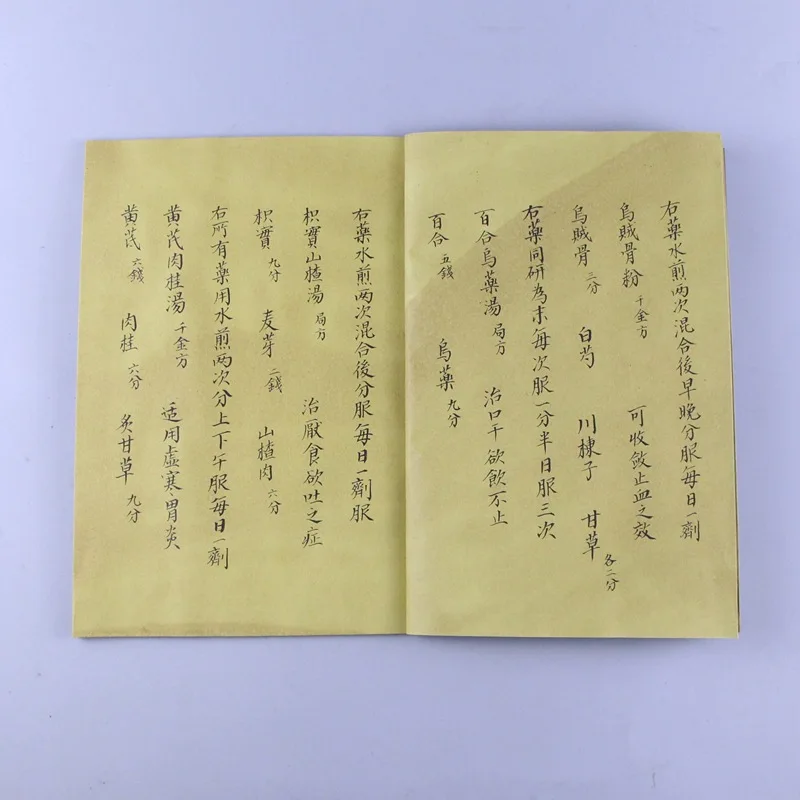 右藥水煎两次混合後早晚分服每日一劑
烏賊骨粉 千金方 可收斂止血之效
烏賊骨 三分 白芍 川楝子 甘草 各二分
右藥同研為末每次服一分半日服三次
百合烏藥湯 局方 治口干欲飲不止
百合 五錢 烏藥 九分
右藥水煎两次混合後分服每日一劑服
枳實山楂湯 局方 治厭食欲吐之症
枳實 九分 麦芽 二錢 山楂肉 六分
右所有藥用水煎两次分上下午服每日一劑
黄芪肉桂湯 千金方 适用虛寒胃炎
黄芪 六錢 肉桂 六分 炙甘草 九分